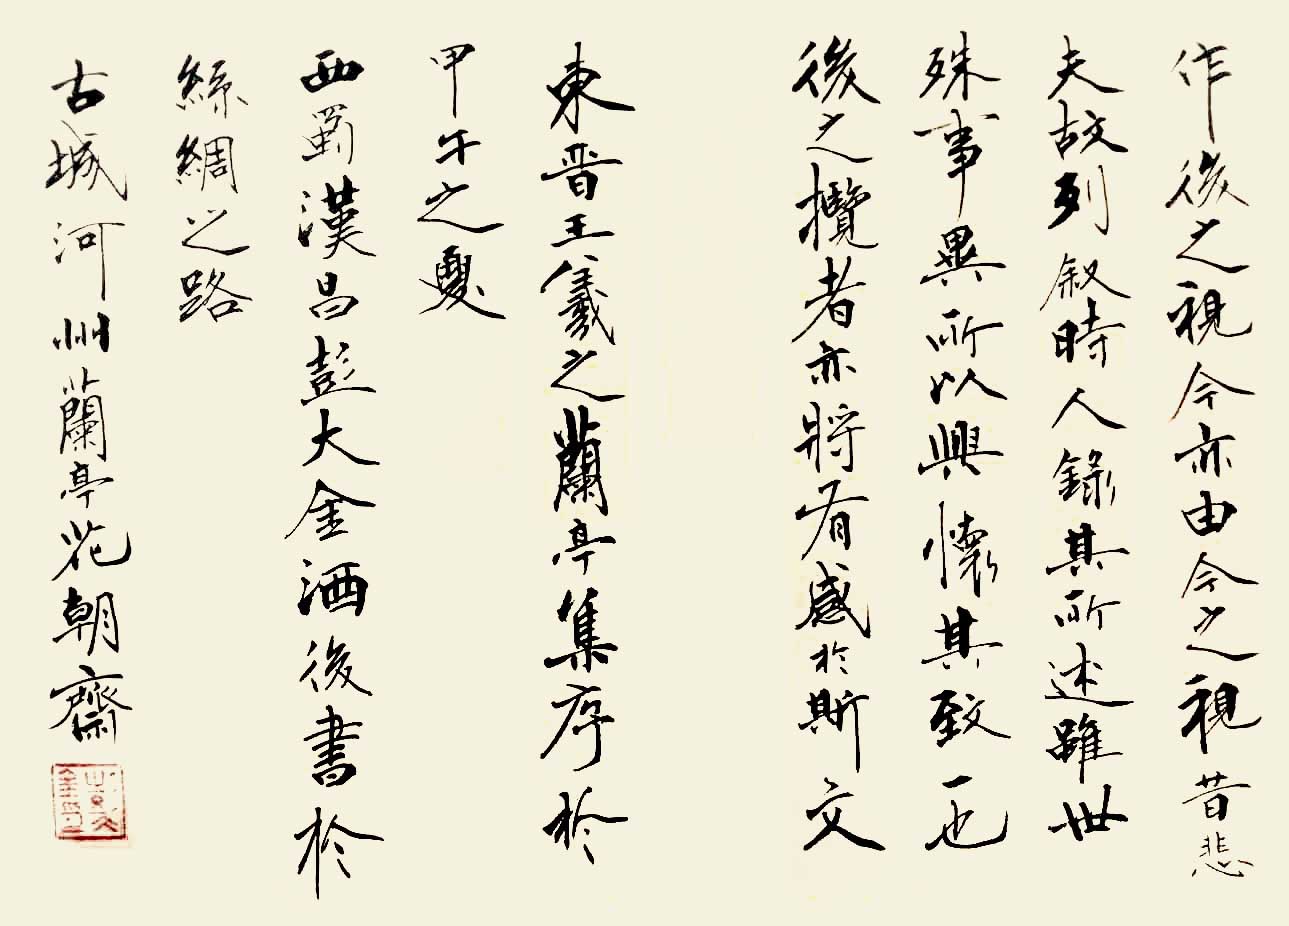 作後之視今亦由今之視昔悲
夫故列叙時人錄其所述雖世
殊事異所以興懷其致一也
後之攬者亦將有感於斯文
東晉王羲之蘭亭集序於
甲午之夏
西蜀漢昌彭大金酒後書於
絲綢之路
古城河州蘭亭花朝齋